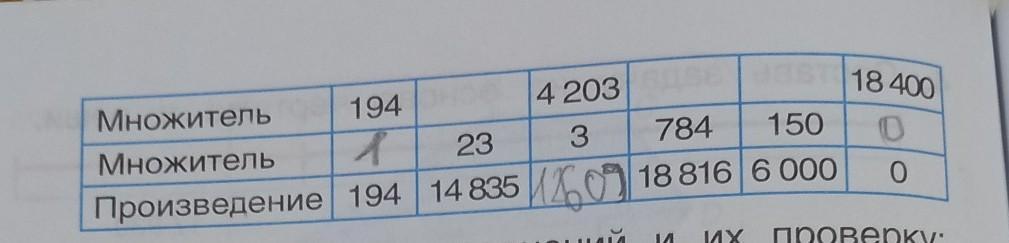 Множитель 194 4 203 18 400
Множитель 1 23 3 784 150 0
Произведение 194 14 835 12609 18 816 6 000 0
и их проверку: